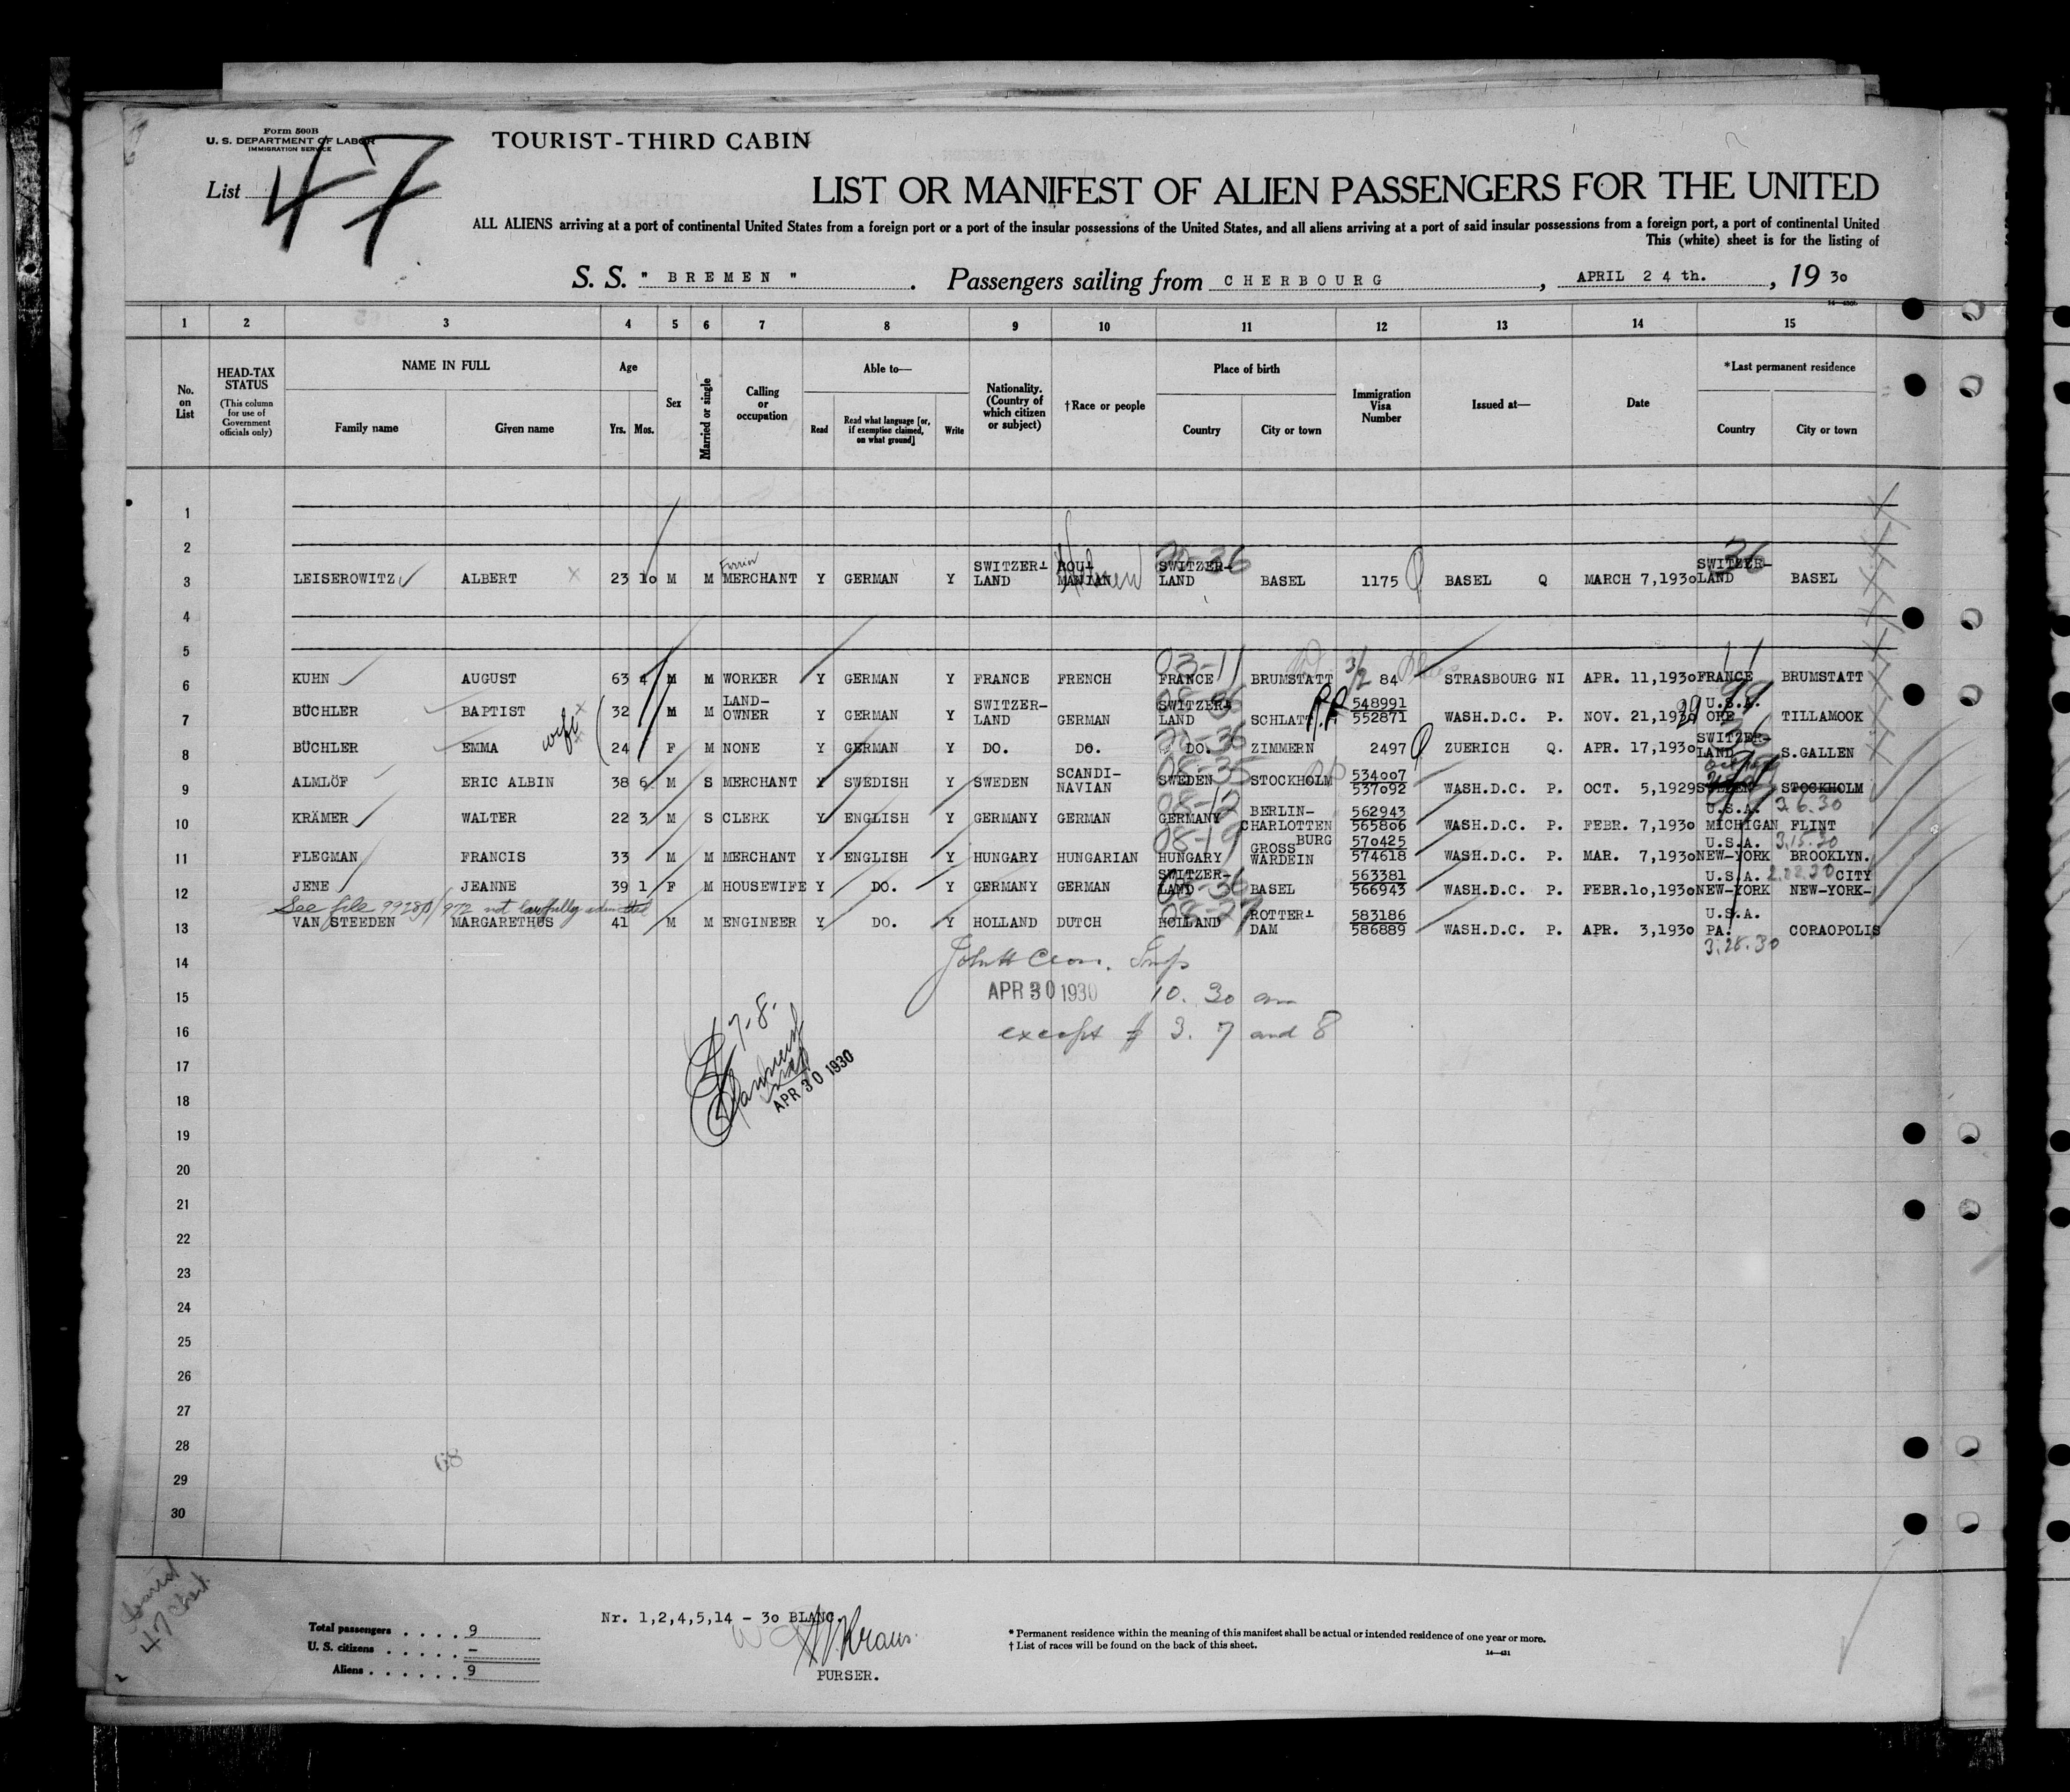 Form 500B
U. S. DEPARTMENT OF LABOR
IMMIGRATION SERVICE
TOURIST-THIRD CABIN
List 47
LIST OR MANIFEST OF ALIEN PASSENGERS FOR THE UNITED
ALL ALIENS arriving at a port of continental United States from a foreign port or a port of the insular possessions of the United States, and all aliens arriving at a port of said insular possessions from a foreign port, a port of continental United
This (white) sheet is for the listing of
S. S. " BREMEN " . Passengers sailing from CHERBOURG , APRIL 24th. , 19 30
1 2 3 4 5 6 7 8 9 10 11 12 13 14 15
No. on List
HEAD-TAX STATUS (This column for use of Government officials only)
NAME IN FULL
Family name Given name
Age
Yrs. Mos.
Sex
Married or single
Calling or occupation
Able to—
Read
Read what language [or, if exemption claimed, on what ground]
Write
Nationality. (Country of which citizen or subject)
†Race or people
Place of birth
Country City or town
Immigration Visa Number
Issued at—
Date
*Last permanent residence
Country City or town
1
2
3 LEISEROWITZ ALBERT 23 10 M M MERCHANT Y GERMAN Y SWITZER-LAND ROU-MANIAN Hebrew SWITZER-LAND 36 BASEL 1175 BASEL Q MARCH 7,1930 SWITZER-LAND 36 BASEL
4
5
6 KUHN AUGUST 63 4 M M WORKER Y GERMAN Y FRANCE FRENCH FRANCE 03-11 BRUMSTATT 84 STRASBOURG NI APR. 11,1930 FRANCE BRUMSTATT
7 BÜCHLER BAPTIST 32 M M LAND-OWNER Y GERMAN Y SWITZER-LAND GERMAN SWITZER-LAND SCHLATT R.P. 548991 552871 WASH.D.C. P. NOV. 21,1930 29 U.S.A. ORE. 99 TILLAMOOK
8 BÜCHLER EMMA wife 24 F M NONE Y GERMAN Y DO. DO. DO. ZIMMERN 2497 ZUERICH Q. APR. 17,1930 SWITZER-LAND 36 S.GALLEN
9 ALMLÖF ERIC ALBIN 38 6 M S MERCHANT Y SWEDISH Y SWEDEN SCANDI-NAVIAN SWEDEN 08-35 STOCKHOLM 534007 537092 WASH.D.C. P. OCT. 5,1929 SWEDEN STOCKHOLM
10 KRÄMER WALTER 22 3 M S CLERK Y ENGLISH Y GERMANY GERMAN GERMANY 08-12 BERLIN-CHARLOTTENBURG 562943 565806 WASH.D.C. P. FEBR. 7,1930 U.S.A. MICHIGAN 2.6.30 FLINT
11 FLEGMAN FRANCIS 33 M M MERCHANT Y ENGLISH Y HUNGARY HUNGARIAN HUNGARY 08-19 GROSS WARDEIN 570425 574618 WASH.D.C. P. MAR. 7,1930 U.S.A. NEW-YORK 3.15.30 BROOKLYN.
12 JENE JEANNE 39 1 F M HOUSEWIFE Y DO. Y GERMANY GERMAN SWITZER-LAND 08-36 BASEL 563381 566943 WASH.D.C. P. FEBR.10,1930 U.S.A. NEW-YORK CITY NEW-YORK-
not lawfully admitted
13 VAN STEEDEN MARGARETHUS 41 M M ENGINEER Y DO. Y HOLLAND DUTCH HOLLAND 08-27 ROTTER-DAM 583186 586889 WASH.D.C. P. APR. 3,1930 U.S.A. PA. CORAOPOLIS
3.28.30
14
15 APR 30 1930 10. 30 am
16 except # 3. 7 and 8
17 7-8.
APR 30 1930
18
19
20
21
22
23
24
25
26
27
28
68
29
30
47
Nr. 1,2,4,5,14 - 30 BLANC.
Kraus.
PURSER.
Total passengers . . . . 9
U. S. citizens . . . . . —
Aliens . . . . . . 9
* Permanent residence within the meaning of this manifest shall be actual or intended residence of one year or more.
† List of races will be found on the back of this sheet.
14—421